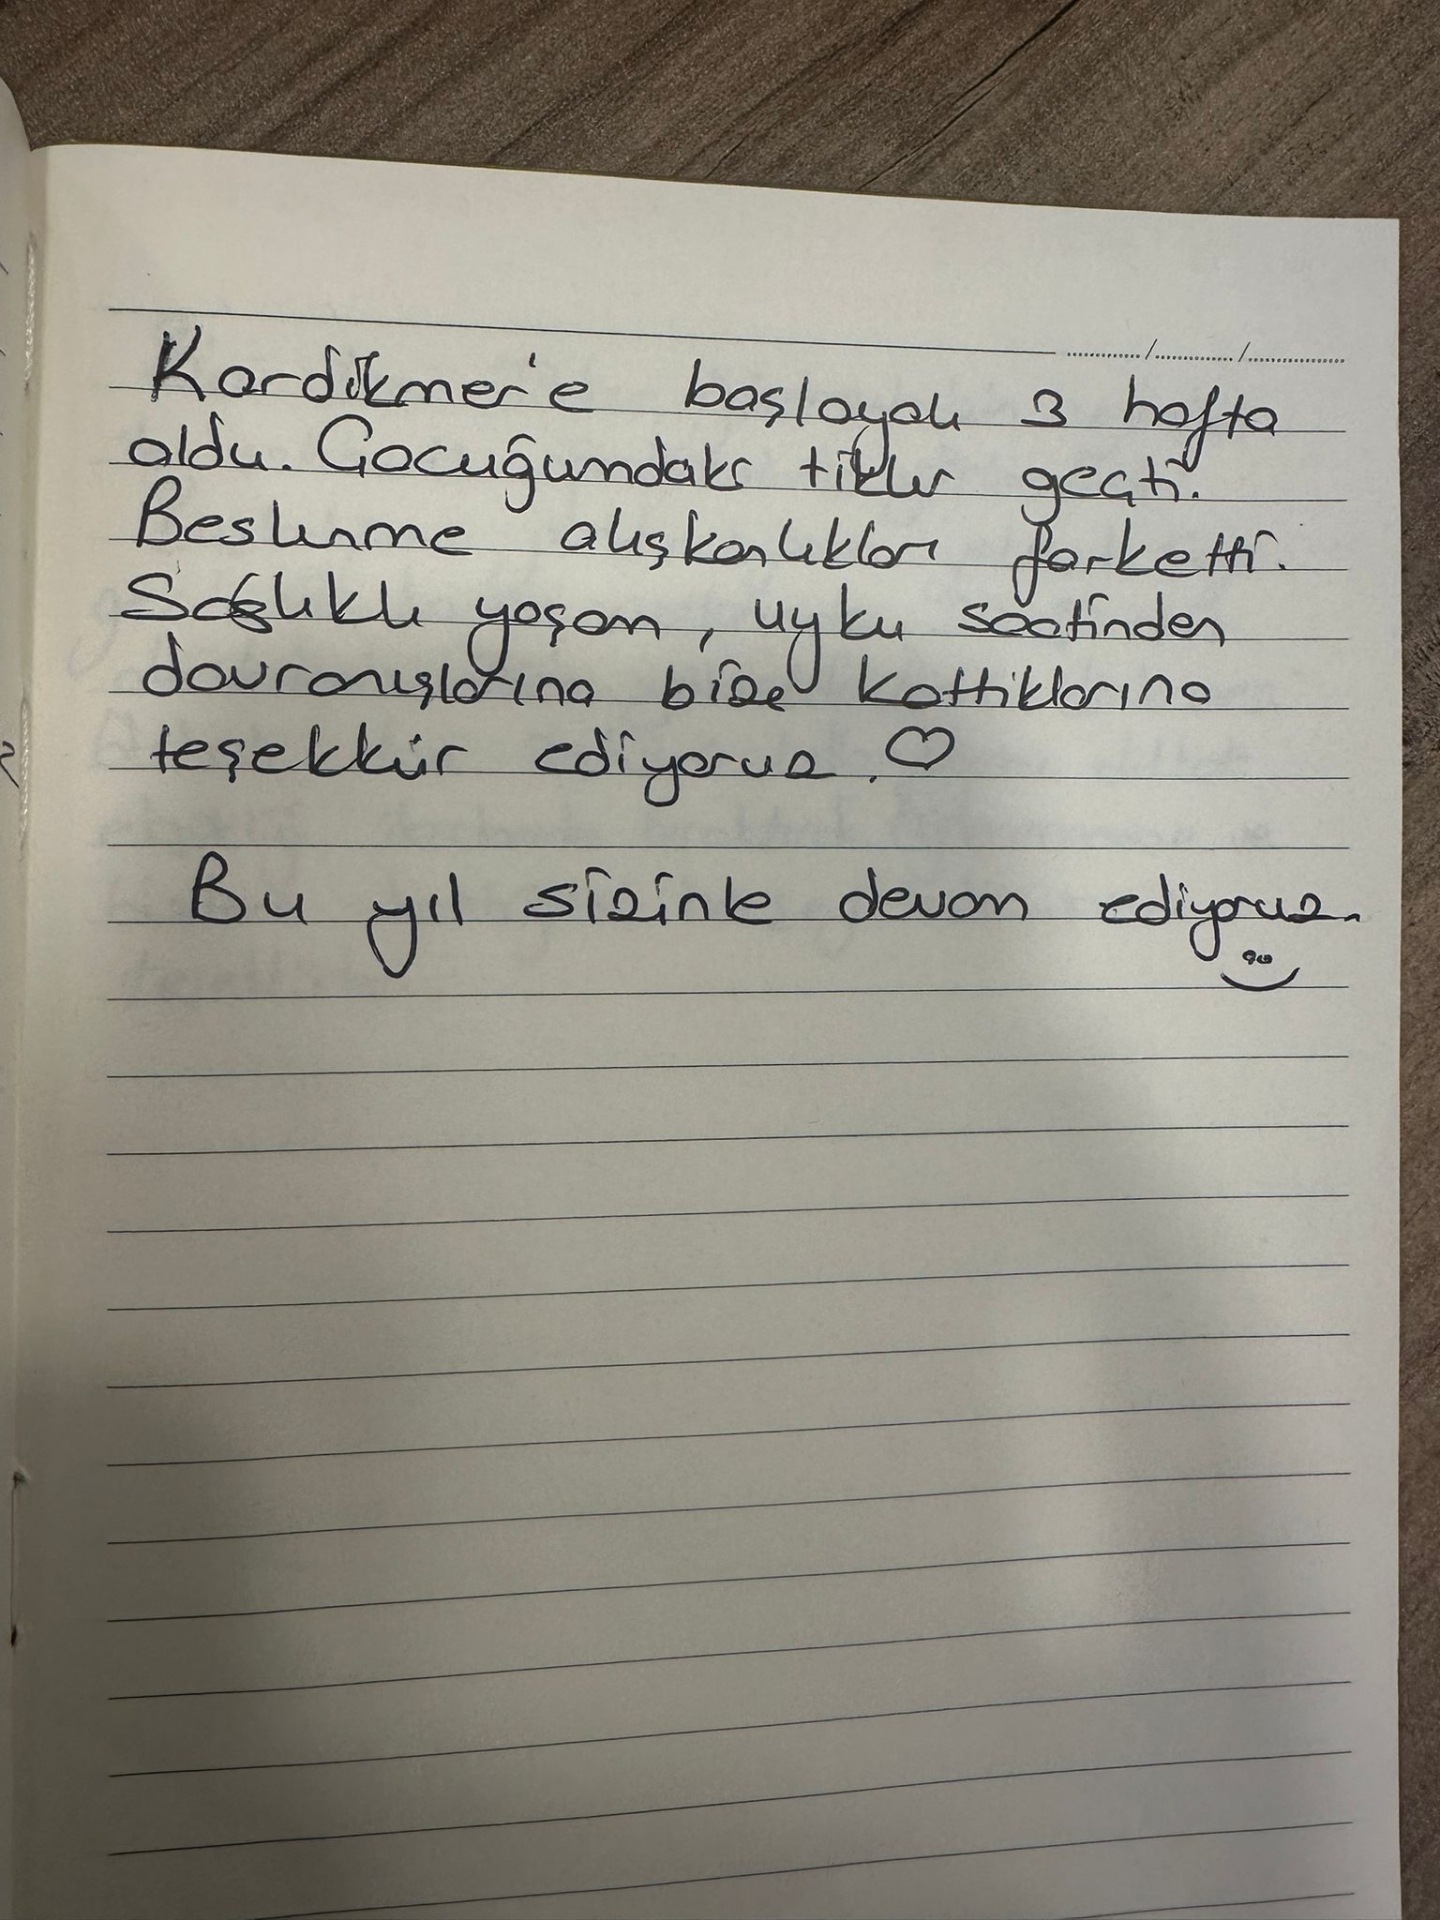 Kardikmer'e başlayalı 3 hafta
oldu. Çocuğumdaki tikler geçti.
Beslenme alışkanlıkları farketti.
Sağlıklı yaşam, uyku saatinden
davranışlarına bize kattıklarına
teşekkür ediyoruz. ♡
Bu yıl sizinle devam ediyoruz.